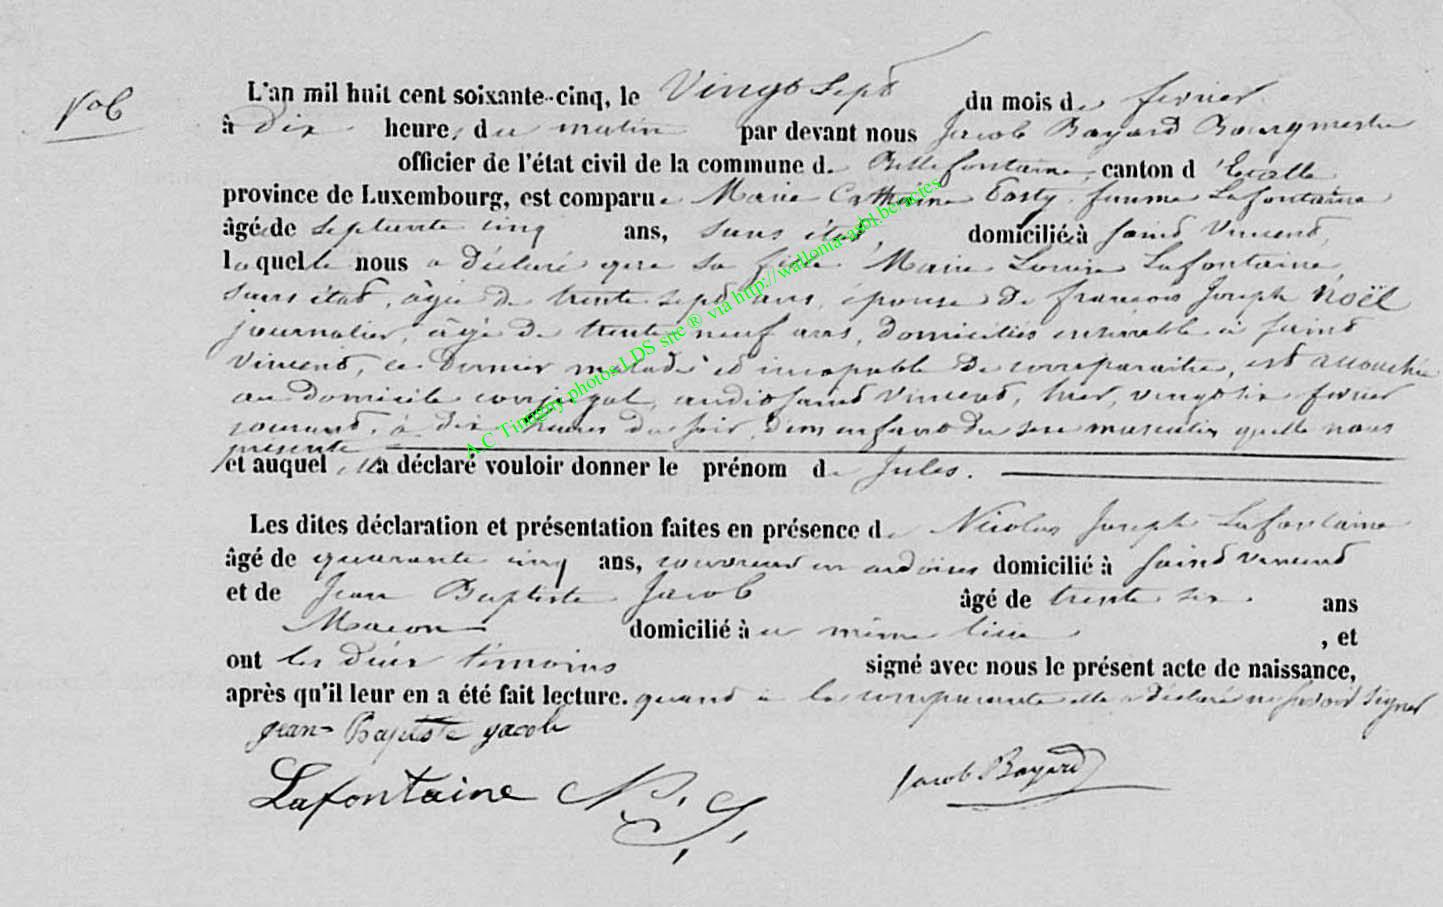 N° 6
L'an mil huit cent soixante-cinq, le Vingt sept du mois de fevrier
à Dix heures du matin par devant nous Jacob Bayard Bourgmestre
officier de l'état civil de la commune de Bellefontaine, canton d'Etalle
province de Luxembourg, est comparue Marie Catherine femme Lafontaine
âgée de septante cinq ans, sans état, domiciliée à Saint Vincent,
laquelle nous a déclaré que sa fille Marie Louise Lafontaine,
sans état, âgée de trente sept ans, épouse de françois Joseph Noël
journalier, âgé de trente neuf ans, domiciliés ensemble à Saint
Vincent, ce dernier malade et incapable de comparaitre, est accouchée
au domicile conjugal, audit Saint Vincent, hier, vingt six fevrier
courant, à dix heures du soir, d'un enfant du sexe masculin quelle nous
présente
et auquel elle a déclaré vouloir donner le prénom de Jules.
Les dites déclaration et présentation faites en présence de Nicolas Joseph Lafontaine
âgé de quarante cinq ans, couvreur en ardoises domicilié à Saint Vincent
et de Jean Baptiste Jacob âgé de trente six ans
Macon domicilié à même lieu, et
ont les deux témoins signé avec nous le présent acte de naissance,
après qu'il leur en a été fait lecture. quand à la comparante elle a déclaré ne savoir signer
Jean Baptiste Jacob
Lafontaine N. J.
Jacob Bayard
A.C Tintigny photos LDS site ® via http://wallonia-asbl.be/acies